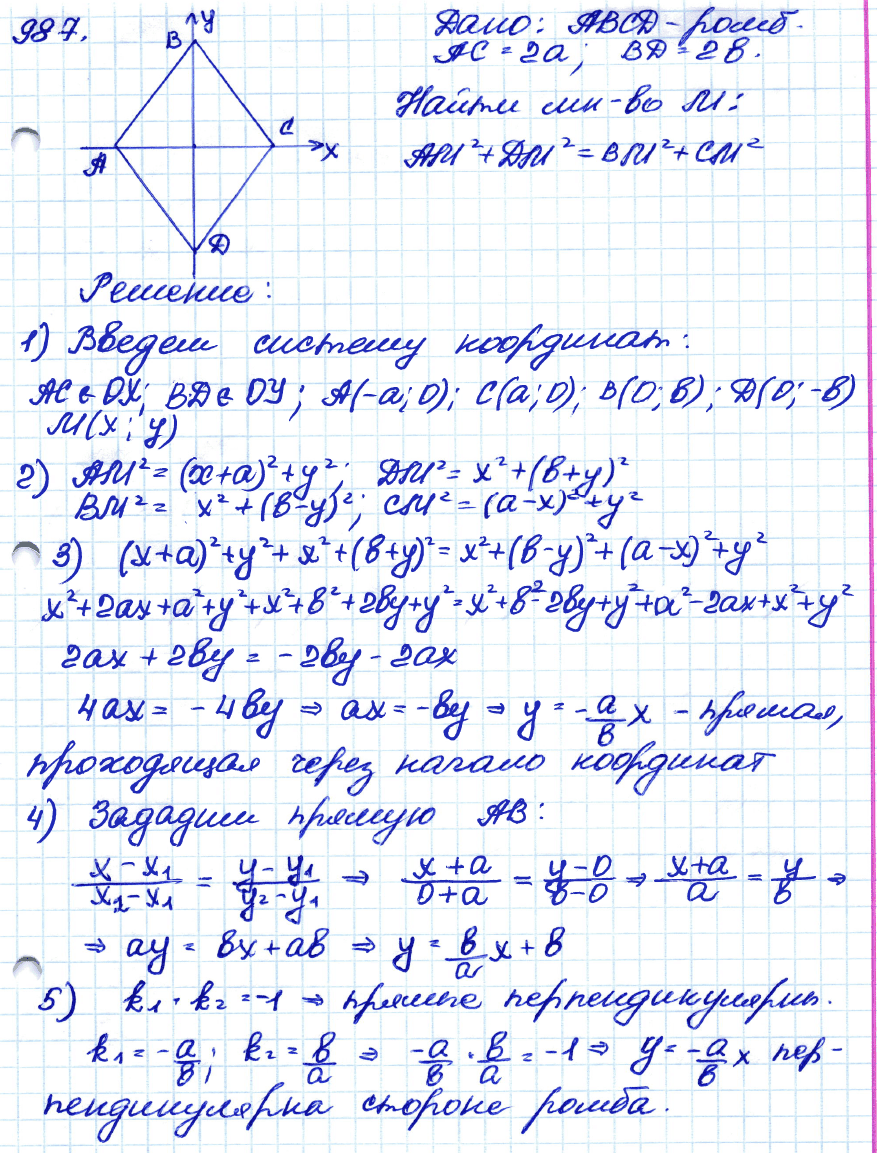 987.
B y
C
A x
D
Дано: ABCD - ромб.
AC = 2a; BD = 2b.
Найти мн-во M:
AM² + DM² = BM² + CM²
Решение:
1) Введем систему координат:
AC ∈ OX; BD ∈ OY; A(-a; 0); C(a; 0); B(0; b); D(0; -b)
M(x; y)
2) AM² = (x+a)² + y²; DM² = x² + (b+y)²
BM² = x² + (b-y)²; CM² = (a-x)² + y²
3) (x+a)² + y² + x² + (b+y)² = x² + (b-y)² + (a-x)² + y²
x² + 2ax + a² + y² + x² + b² + 2by + y² = x² + b² - 2by + y² + a² - 2ax + x² + y²
2ax + 2by = -2by - 2ax
4ax = -4by ⇒ ax = -by ⇒ y = -a/b x - прямая,
проходящая через начало координат
4) Зададим прямую AB:
(x - x₁)/(x₂ - x₁) = (y - y₁)/(y₂ - y₁) ⇒ (x + a)/(0 + a) = (y - 0)/(b - 0) ⇒ (x+a)/a = y/b ⇒
⇒ ay = bx + ab ⇒ y = b/a x + b
5) k₁ · k₂ = -1 ⇒ прямые перпендикулярны.
k₁ = -a/b; k₂ = b/a ⇒ -a/b · b/a = -1 ⇒ y = -a/b x пер-
пендикулярна стороне ромба.